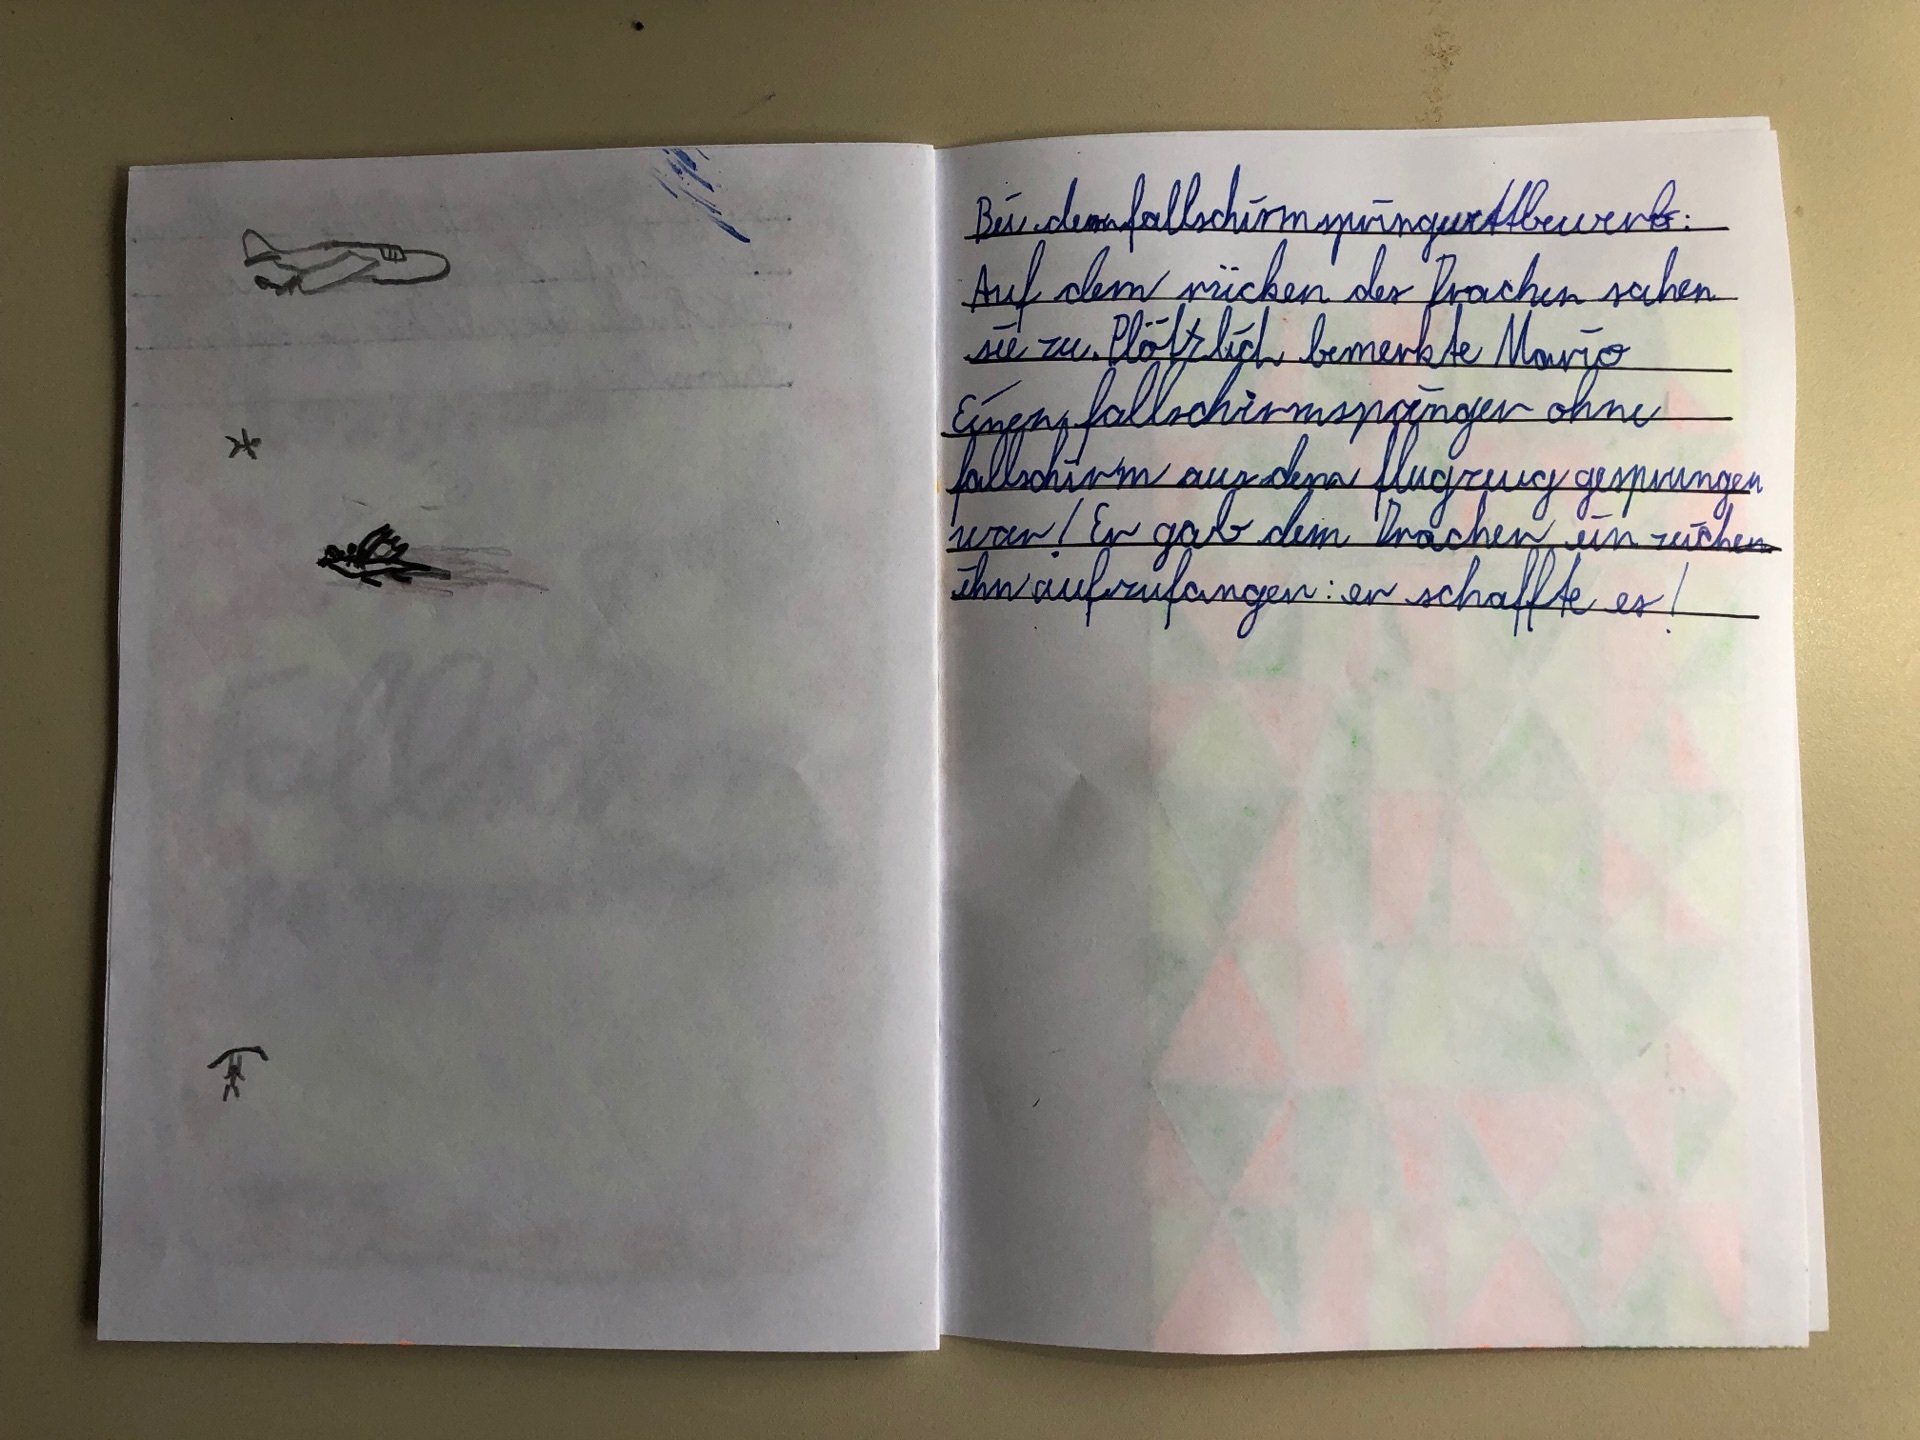 Bei dem fallschirmspringwettbewerb:
Auf dem rücken des Drachen sahen
sie zu. Plötzlich bemerkte Mario
Einen fallschirmspringer ohne
fallschirm aus dem flugzeug gesprungen
war! Er gab dem Drachen ein zeichen
ihn aufzufangen: er schaffte es!